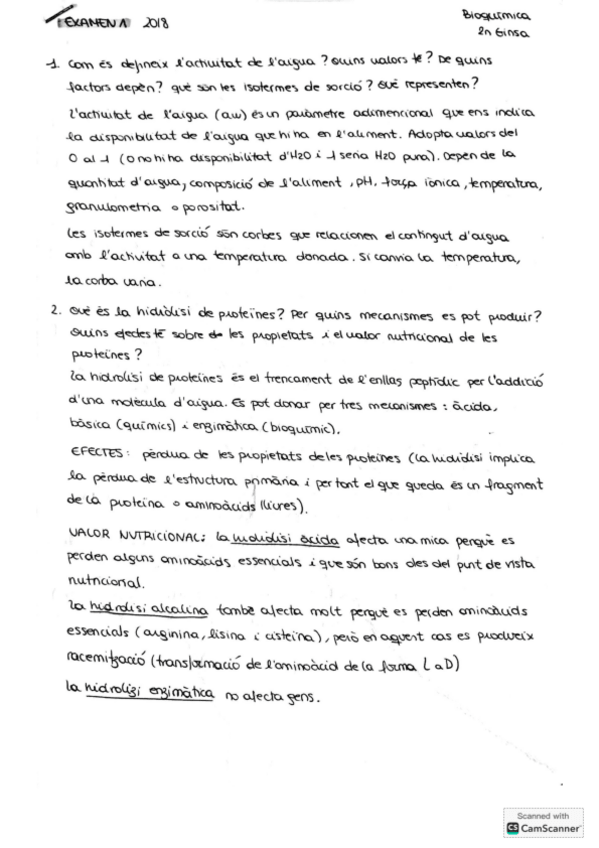 EXAMEN 1 2018
Bioquímica
2n Ginsa
1. Com és defineix l'activitat de l'aigua? Quins valors té? De quins
factors depèn? què són les isotermes de sorció? Què representen?
L'activitat de l'aigua (aw) és un paràmetre adimencional que ens indica
la disponibilitat de l'aigua que hi ha en l'aliment. Adopta valors del
0 al 1 (0 no hi ha disponibilitat d'H2O i 1 seria H2O pura). Depèn de la
quantitat d'aigua, composició de l'aliment, pH, força iònica, temperatura,
granulometria o porositat.
Les isotermes de sorció són corbes que relacionen el contingut d'aigua
amb l'activitat a una temperatura donada. Si canvia la temperatura,
la corba varia.
2. Què és la hidròlisi de proteïnes? Per quins mecanismes es pot produir?
Quins efectes té sobre les propietats i el valor nutricional de les
proteïnes?
La hidròlisi de proteïnes és el trencament de l'enllaç peptídic per l'addició
d'una molècula d'aigua. Es pot donar per tres mecanismes: àcida,
bàsica (químics) i enzimàtica (bioquímic).
EFECTES: pèrdua de les propietats de les proteïnes (la hidròlisi implica
la pèrdua de l'estructura primària i per tant el que queda és un fragment
de la proteïna o aminoàcids lliures).
VALOR NUTRICIONAL: la hidròlisi àcida afecta una mica perquè es
perden alguns aminoàcids essencials i que són bons des del punt de vista
nutricional.
La hidròlisi alcalina també afecta molt perquè es perden aminoàcids
essencials (arginina, lisina i cisteïna), però en aquest cas es produeix
racemització (transformació de l'aminoàcid de la forma L a D)
la hidrolisi enzimàtica no afecta gens.
Scanned with
CS CamScanner